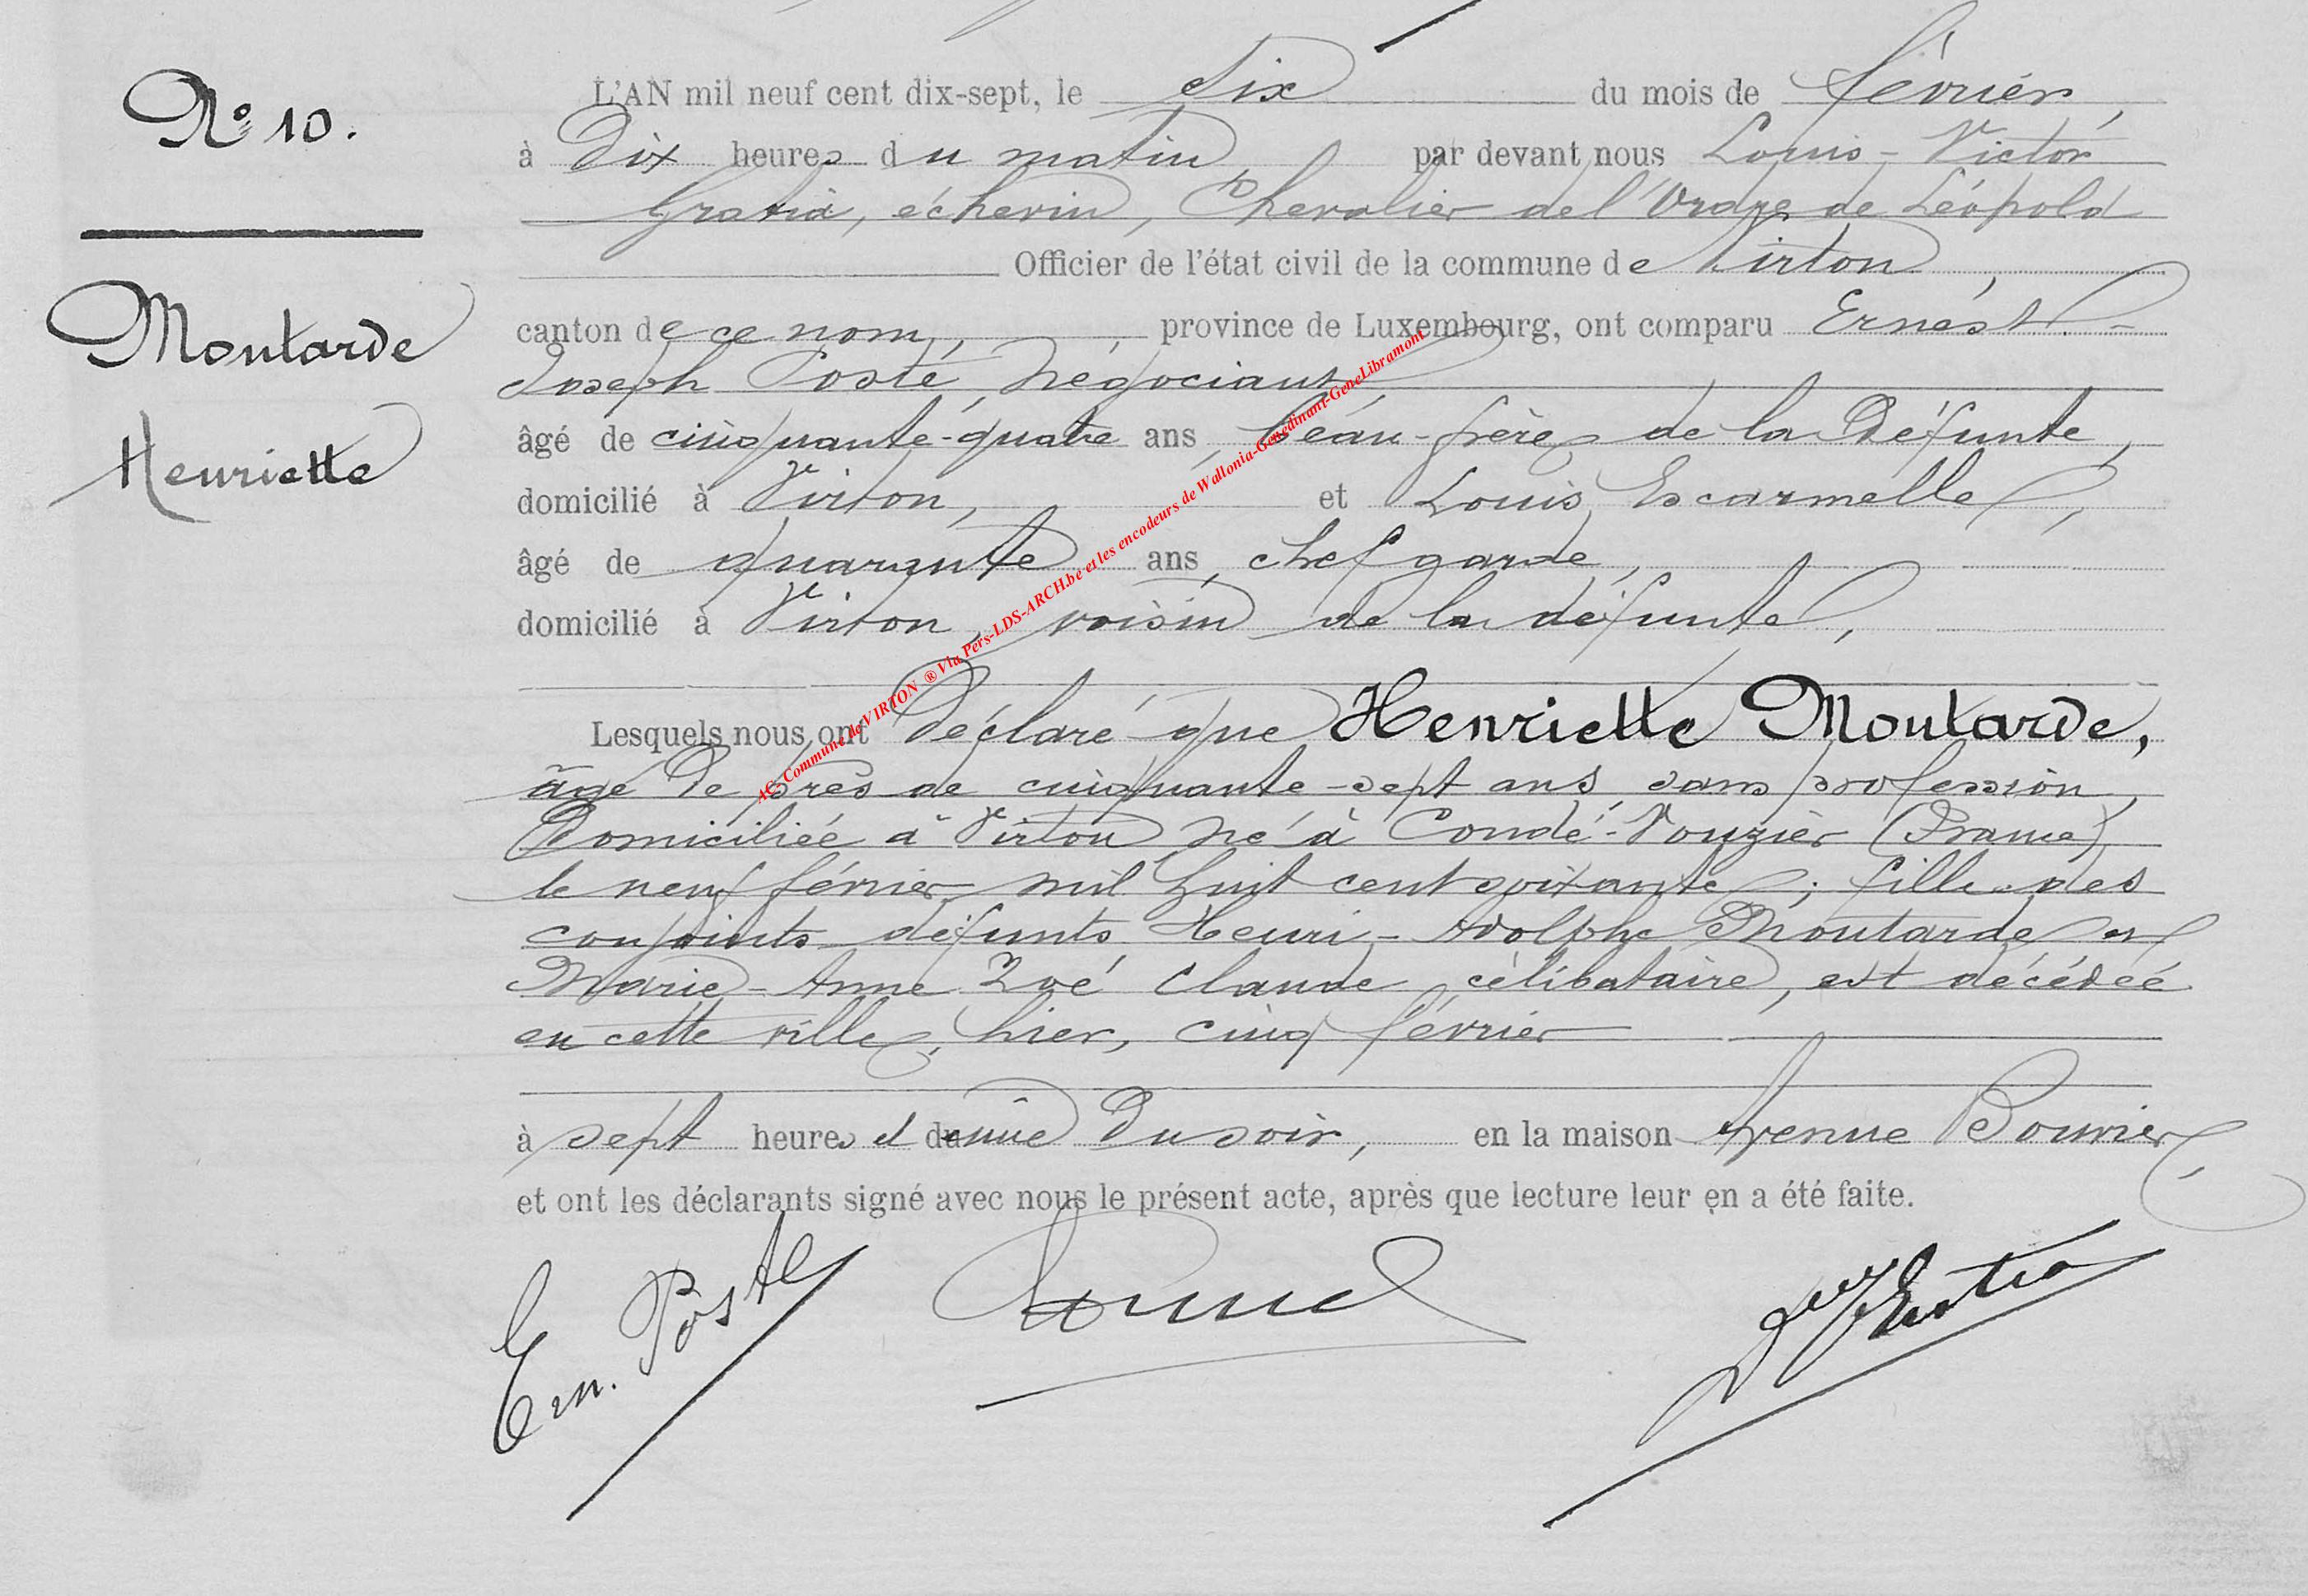 N° 10.
Moutarde
Henriette
L'AN mil neuf cent dix-sept, le six du mois de février,
à Dix heures du matin par devant nous Louis-Victor
Gratia, échevin, Chevalier de l'Ordre de Léopold
Officier de l'état civil de la commune de Virton,
canton de ce nom, province de Luxembourg, ont comparu Ernest-
Joseph Posté, négociant,
âgé de cinquante-quatre ans, beau-frère de la Défunte,
domicilié à Virton, et Louis Escarmelle,
âgé de quarante ans, chef garde,
domicilié à Virton, voisin de la défunte,
Lesquels nous ont Déclaré que Henriette Moutarde,
âgé De près de cinquante-sept ans sans profession,
Domiciliée à Virton, né à Condé-Vouzier (France)
le neuf février mil huit cent soixante; fille des
conjoints défunts Henri-Adolphe Moutarde et
Marie-Anne Zoé Claude, célibataire, est décédée
en cette ville, hier, cinq février
à sept heures et demie Du soir, en la maison Avenue Bouvier,
et ont les déclarants signé avec nous le présent acte, après que lecture leur en a été faite.
Ern. Posté
AC- Commune de VIRTON ® Via Pers-LDS-ARCH.be et les encodeurs de Wallonia-Genedinant-GeneLibramont